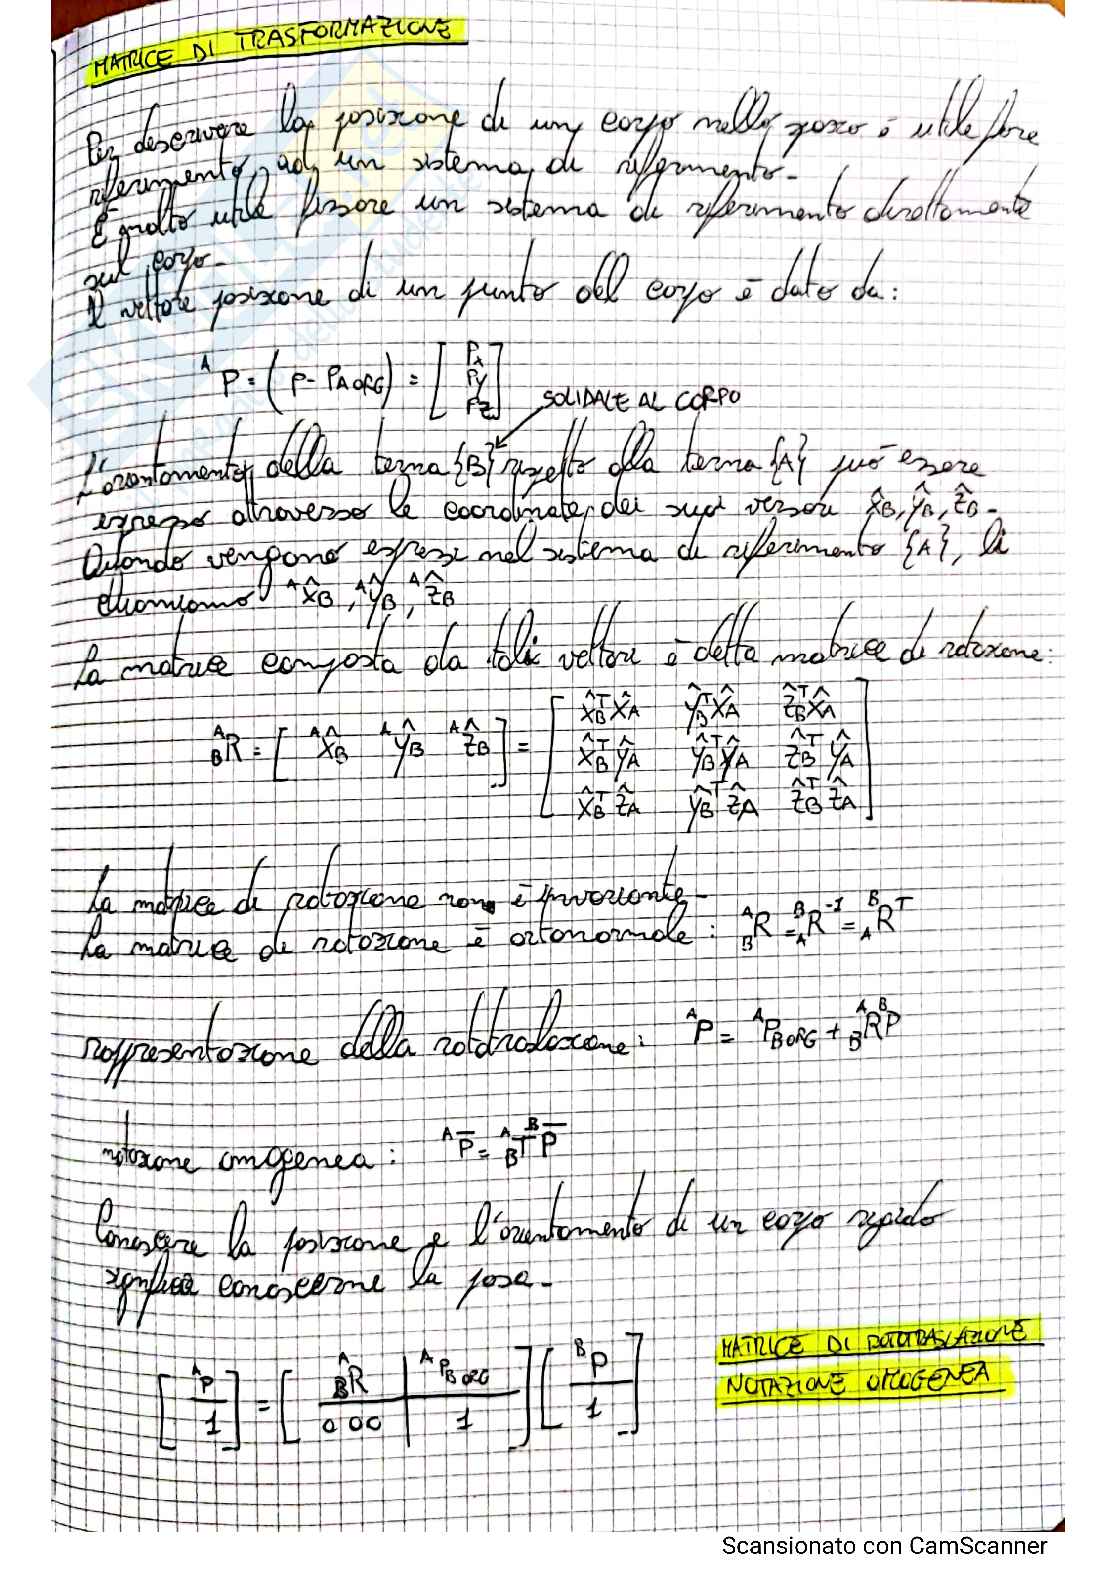 MATRICE DI TRASFORMAZIONE
Per descrivere la posizione di un corpo nello spazio è utile fare
riferimento ad un sistema di riferimento.
È molto utile fissare un sistema di riferimento direttamente
sul corpo.
Il vettore posizione di un punto del corpo è dato da:
ᴬP = (P - P_AORG) = [Px Py Pz]
SOLIDALE AL CORPO
L'orientamento della terna {B} rispetto alla terna {A} può essere
espresso attraverso le coordinate dei suoi versori X̂_B, Ŷ_B, Ẑ_B.
Quando vengono espressi nel sistema di riferimento {A}, li
chiamiamo ᴬX̂_B, ᴬŶ_B, ᴬẐ_B
La matrice composta da tali vettori è detta matrice di rotazione:
ᴬ_BR = [ᴬX̂_B ᴬŶ_B ᴬẐ_B] = [X̂_Bᵀ X̂_A Ŷ_Bᵀ X̂_A Ẑ_Bᵀ X̂_A
X̂_Bᵀ Ŷ_A Ŷ_Bᵀ Ŷ_A Ẑ_Bᵀ Ŷ_A
X̂_Bᵀ Ẑ_A Ŷ_Bᵀ Ẑ_A Ẑ_Bᵀ Ẑ_A]
La matrice di rotazione non è invariante.
La matrice di rotazione è ortonormale: ᴬ_BR = ᴮ_AR⁻¹ = ᴮ_ARᵀ
rappresentazione della rototraslazione: ᴬP = ᴬP_BORG + ᴬ_BR ᴮP
notazione omogenea: ᴬP̅ = ᴬ_BT ᴮP̅
Conoscere la posizione e l'orientamento di un corpo rigido
significa conoscerne la posa.
MATRICE DI ROTOTRASLAZIONE
NOTAZIONE OMOGENEA
[ᴬP 1] = [ᴬ_BR ᴬP_BORG 0 0 0 1] [ᴮP 1]
Scansionato con CamScanner